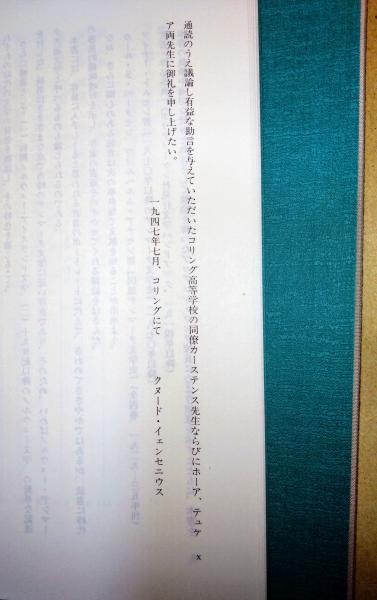 通読のうえ議論し有益な助言を与えていただいたコリング高等学校の同僚カーステンス先生ならびにホーア、テュケ
ア両先生に御礼を申し上げたい。
一九四七年七月、コリングにて
クヌード・イェンセニウス
x